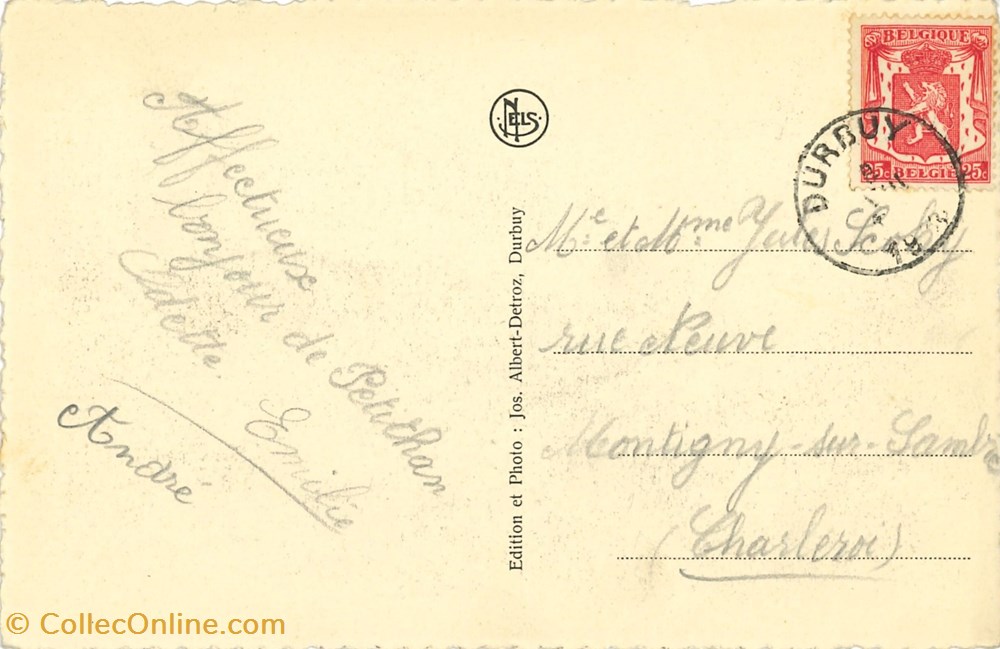 BELGIQUE
25c BELGIË 25c
DURBUY
NELS
Affectueux
bonjour de Petithan
Emilie
André
Edition et Photo : Jos. Albert-Detroz, Durbuy
Mr et Mme Jules
rue Neuve
Montigny-sur-Sambre
(Charleroi)
© CollecOnline.com